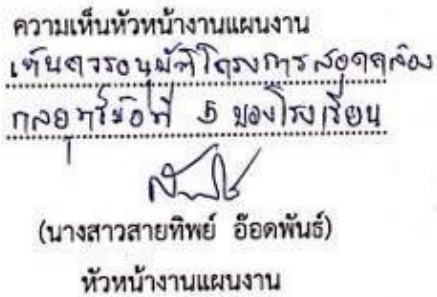 ความเห็นหัวหน้างานแผนงาน
เห็นควรอนุมัติโครงการสอดคล้อง
กลยุทธ์ข้อที่ 5 ของโรงเรียน
(นางสาวสายทิพย์ อ๊อดพันธ์)
หัวหน้างานแผนงาน